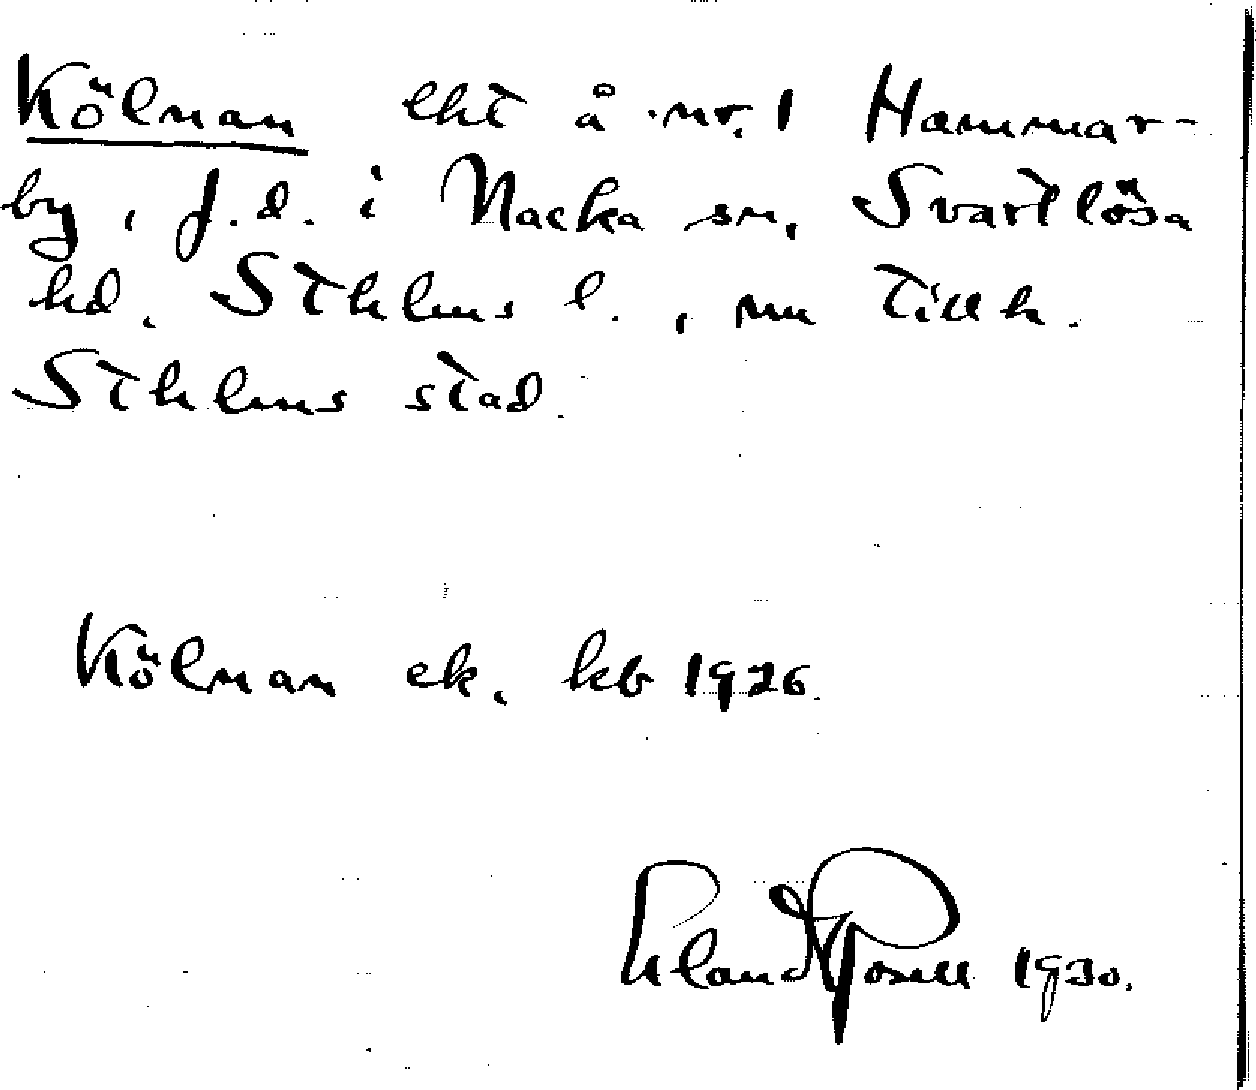 Kölnan eht å nr. 1 Hammar-
by, f.d. i Nacka sn, Svartlösa
hd, Sthlms l., nu tillh.
Sthlms stad.
Kölnan ek. kb 1926.
Erland Rosell 1930.